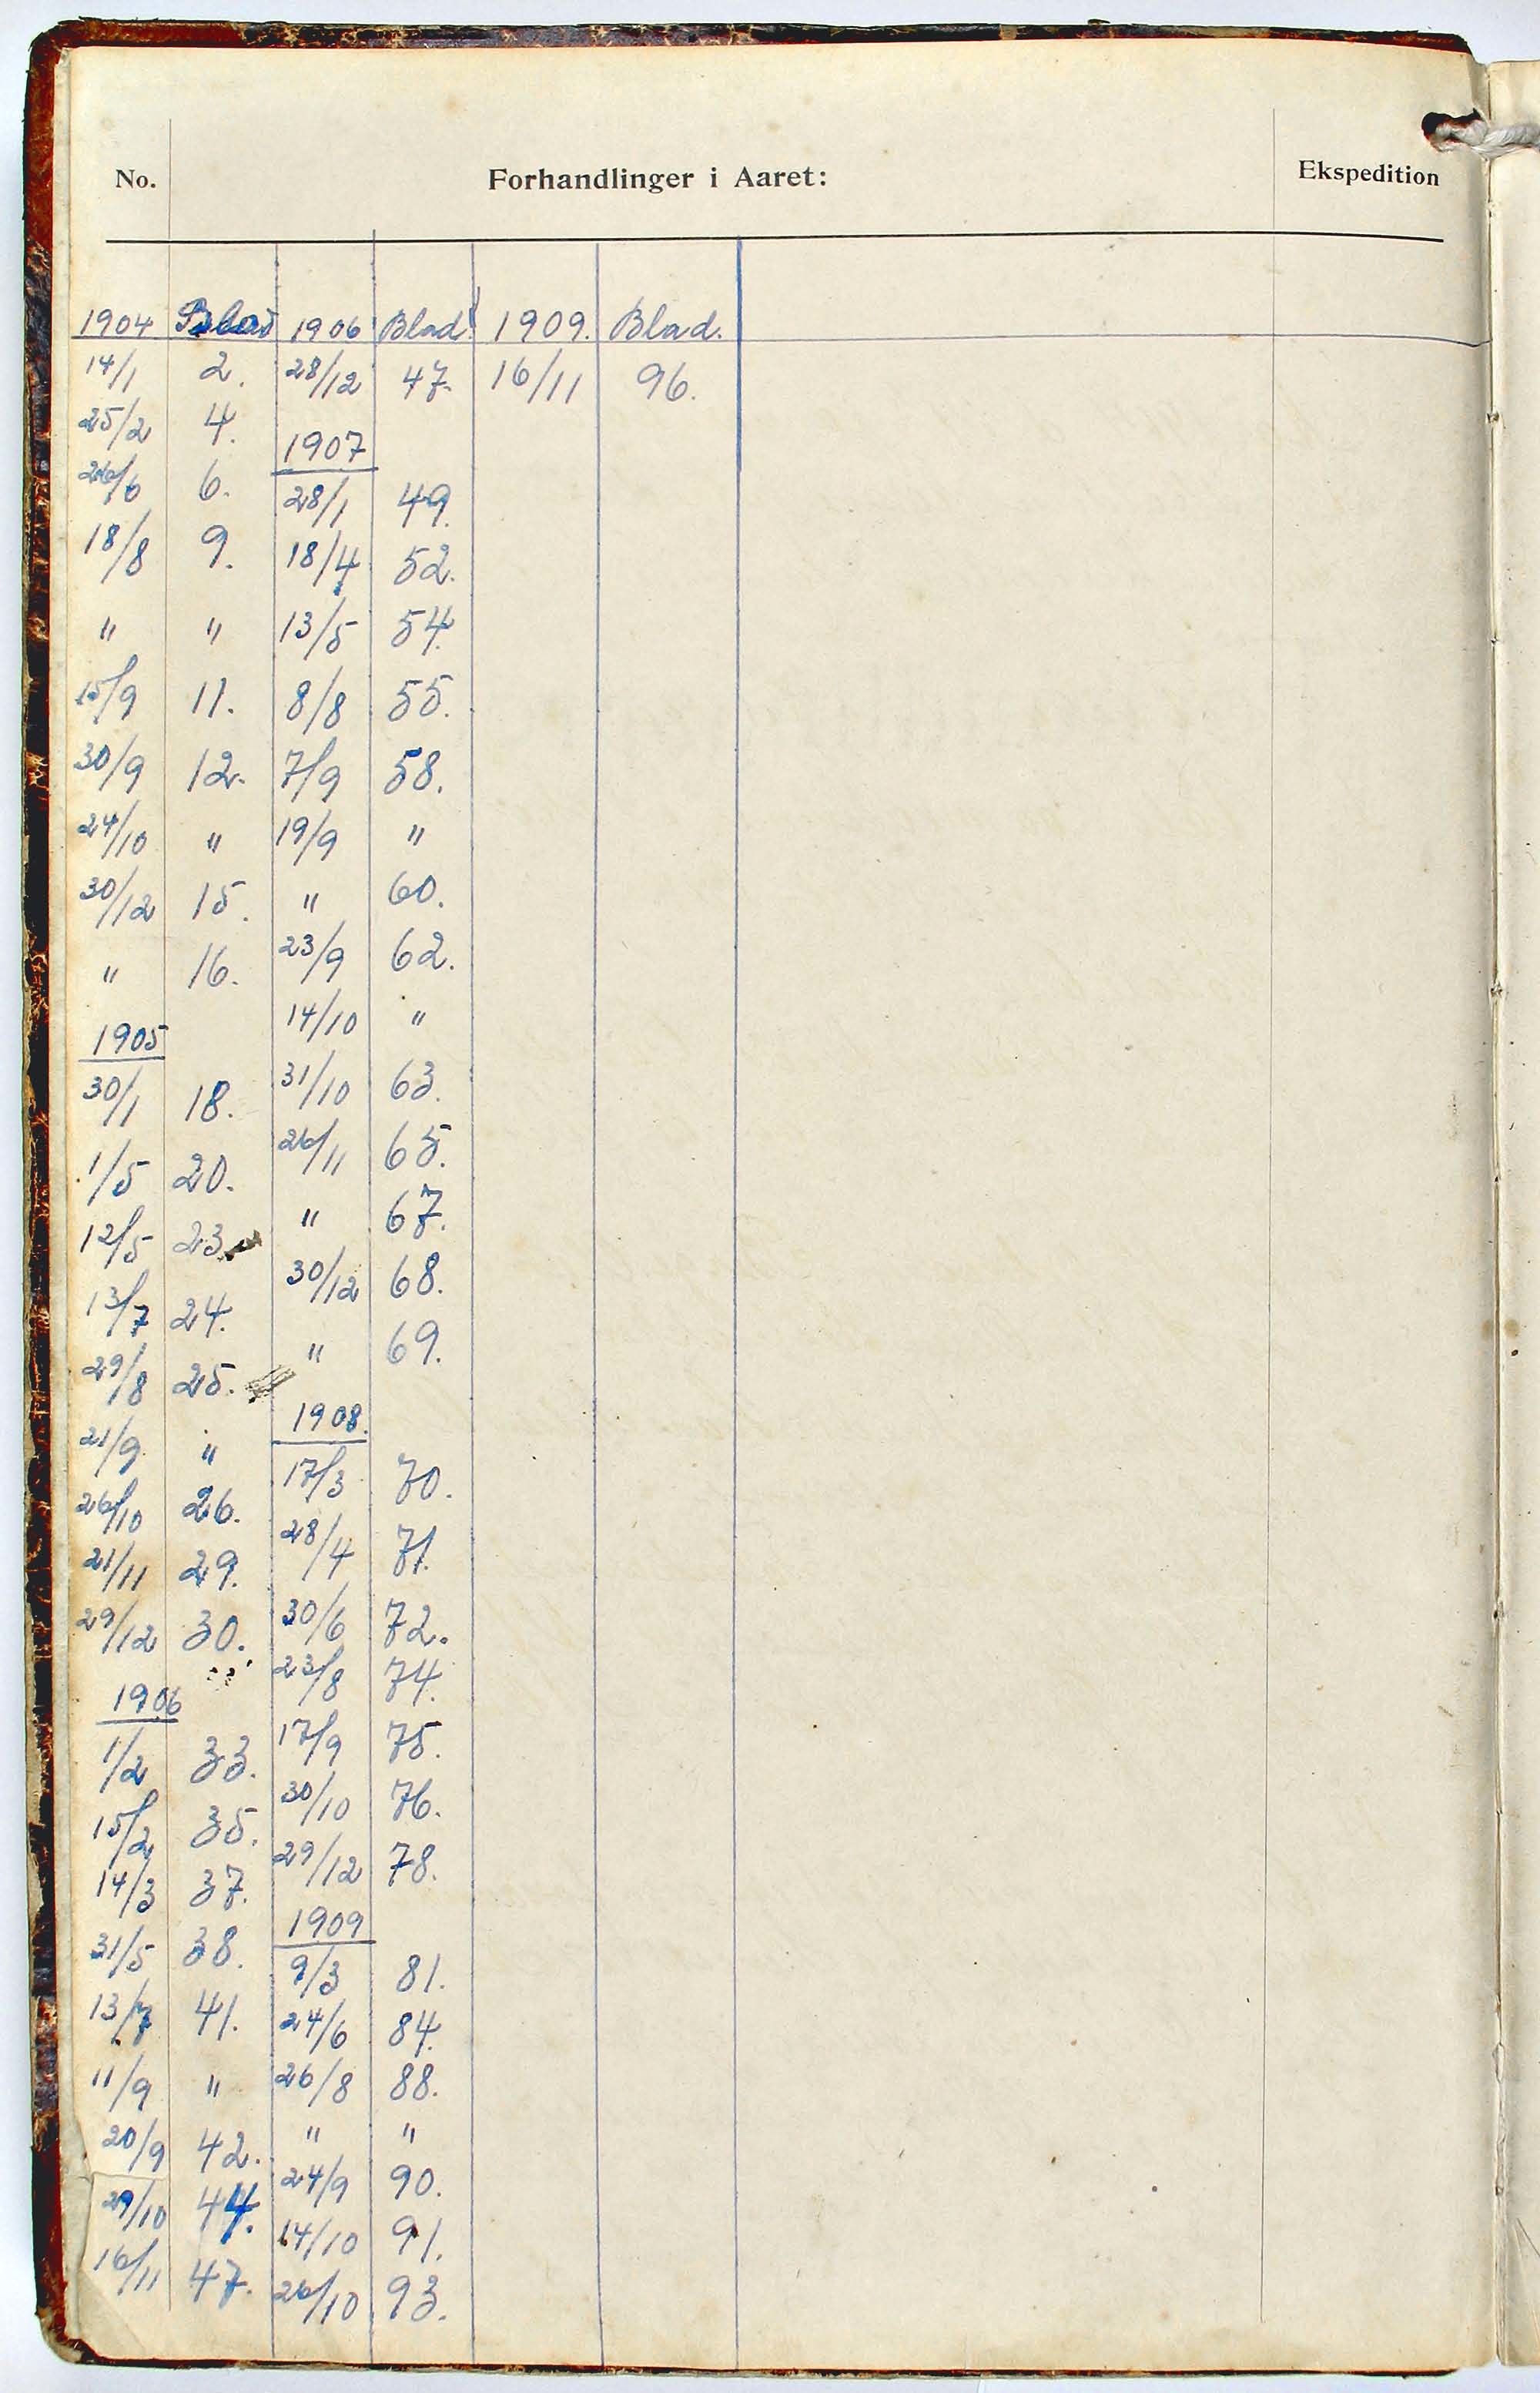 No. Forhandlinger i Aaret: Ekspedition
1904 Blad
14/1 2.
25/2 4.
26/6 6.
18/8 9.
" "
15/9 11.
30/9 12.
24/10 "
30/12 15.
" 16.
1905
30/1 18.
1/5 20.
12/5 23.
13/7 24.
29/8 25.
21/9 "
26/10 26.
21/11 29.
29/12 30.
1906
1/2 33.
15/2 35.
14/3 37.
31/5 38.
13/7 41.
11/9 "
20/9 42.
29/10 44.
16/11 47.
1906 Blad
28/12 47.
1907
28/1 49.
18/4 52.
13/5 54.
8/8 55.
7/9 58.
19/9 "
" 60.
23/9 62.
14/10 "
31/10 63.
26/11 65.
" 67.
30/12 68.
" 69.
1908.
17/3 70.
28/4 71.
30/6 72.
23/8 74.
17/9 75.
30/10 76.
29/12 78.
1909
9/3 81.
24/6 84.
26/8 88.
" "
24/9 90.
14/10 91.
26/10 93.
1909. Blad.
16/11 96.